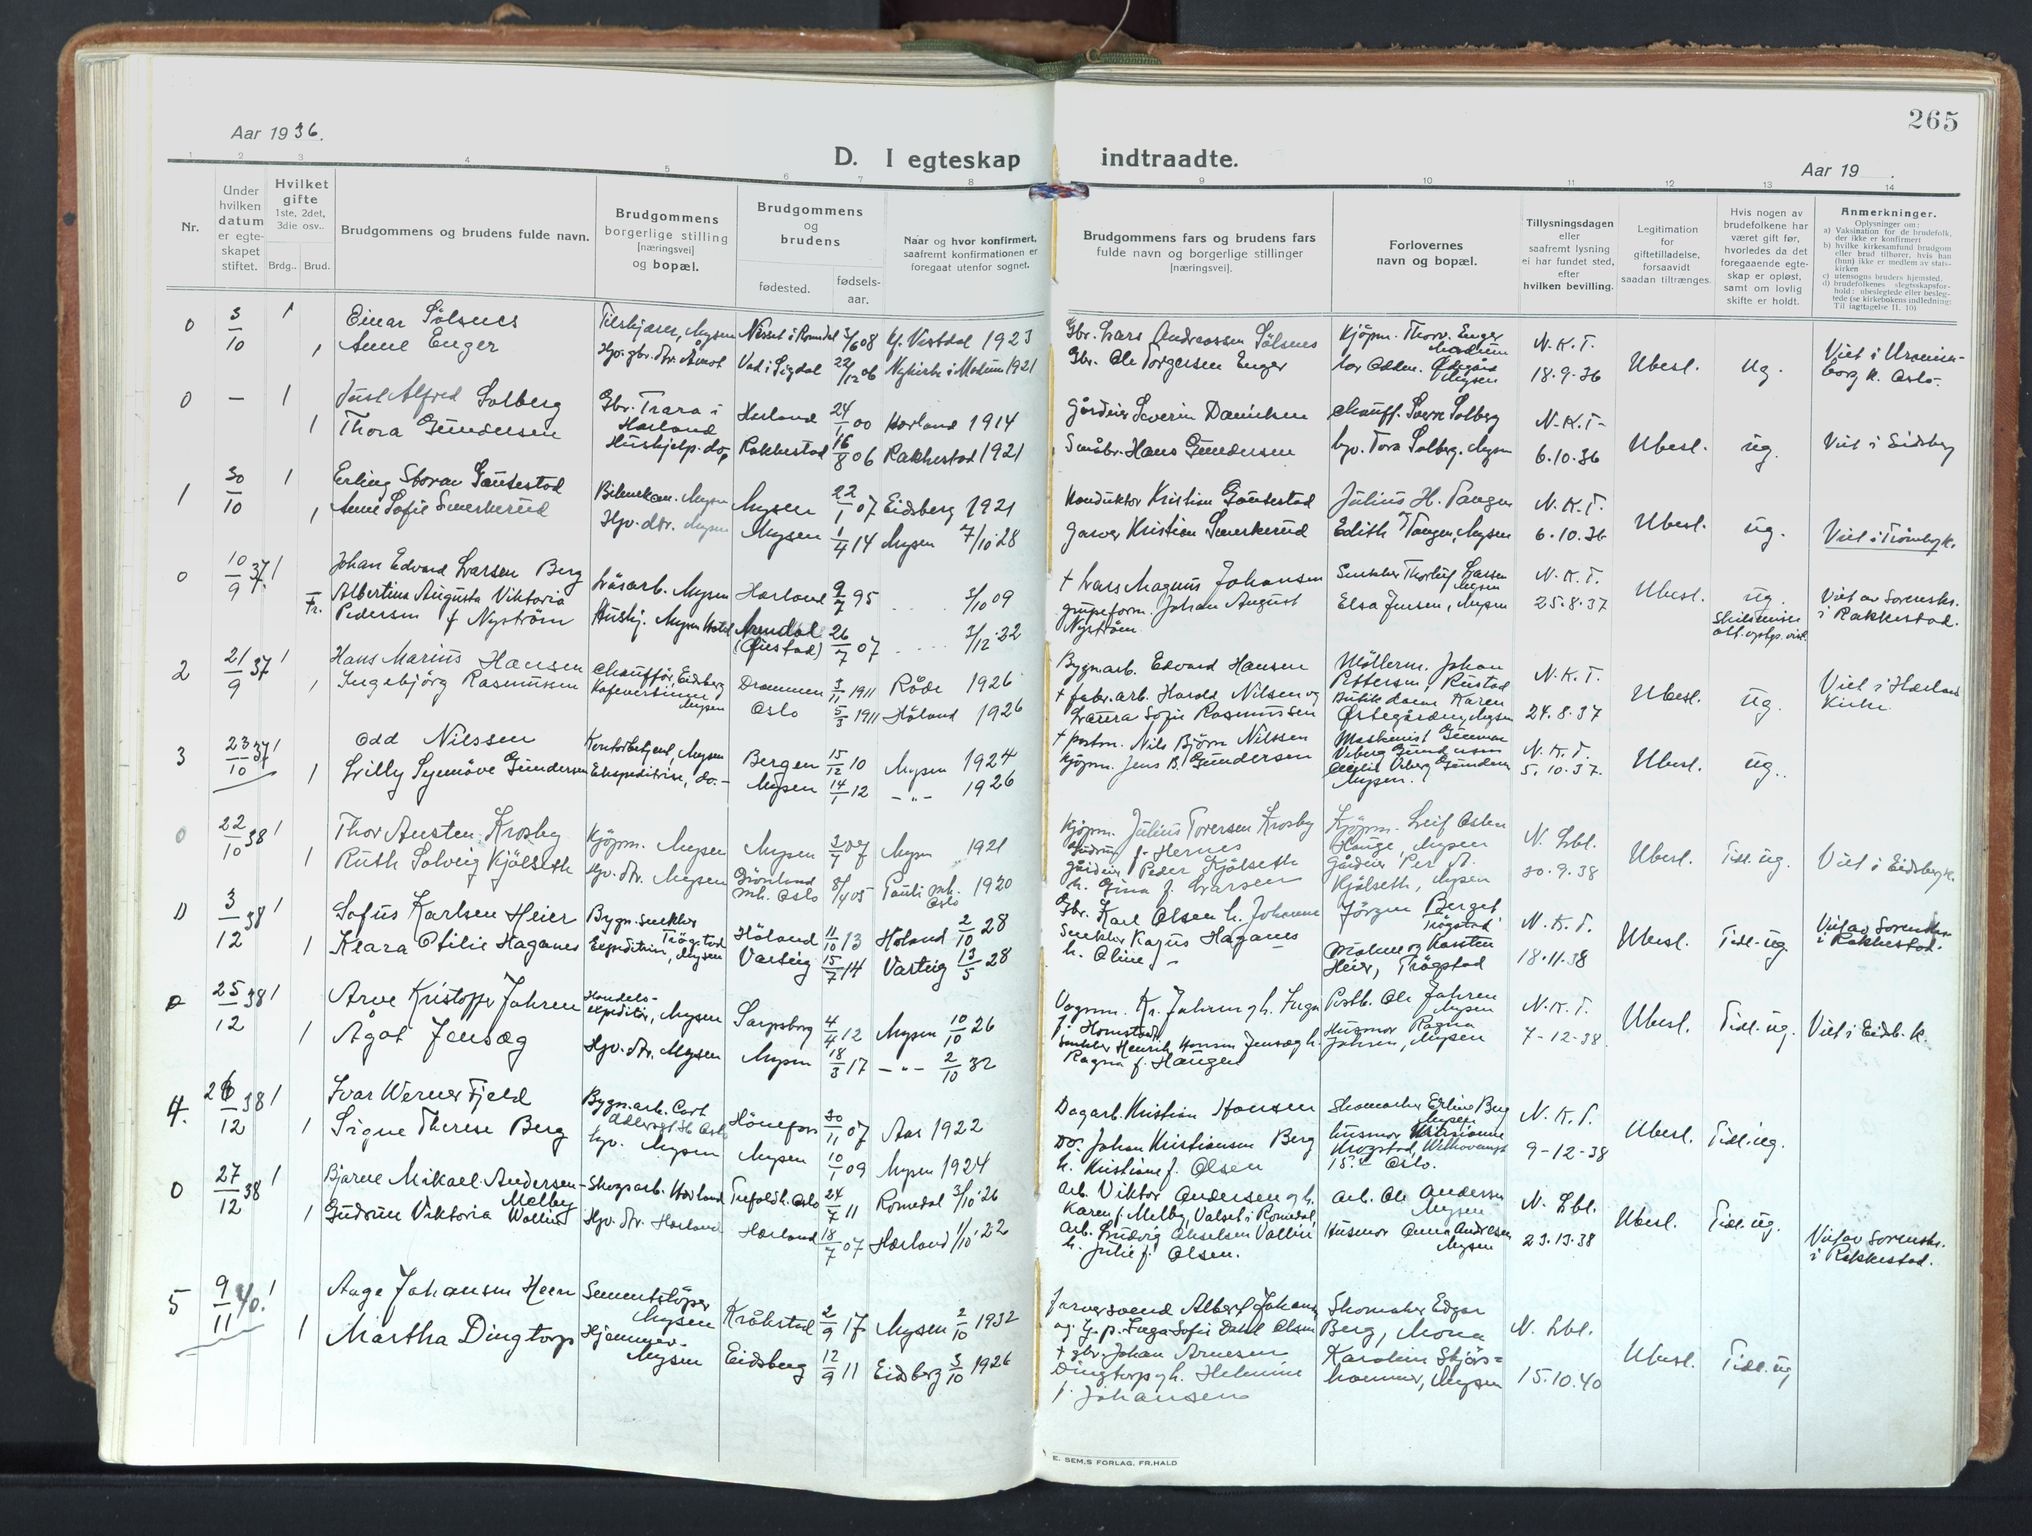 265
Aar 1936.
D. I egteskap indtraadte.
Aar 19 .
1 2 3 4 5 6 7 8 9 10 11 12 13 14
Nr.
Under hvilken datum er egteskapet stiftet.
Hvilket gifte 1ste, 2det, 3die osv..
Brdg. Brud.
Brudgommens og brudens fulde navn.
Brudgommens borgerlige stilling [næringsvei] og bopæl.
Brudgommens og brudens
fødested. fødselsaar.
Naar og hvor konfirmert, saafremt konfirmationen er foregaat utenfor sognet.
Brudgommens fars og brudens fars fulde navn og borgerlige stillinger [næringsvei].
Forlovernes navn og bopæl.
Tillysningsdagen eller saafremt lysning ei har fundet sted, efter hvilken bevilling.
Legitimation for giftetilladelse, forsaavidt saadan tiltrænges.
Hvis nogen av brudefolkene har været gift før, hvorledes da det foregaaende egteskap er opløst, samt om lovlig skifte er holdt.
Anmerkninger.
Oplysninger om:
a) Vaksination for de brudefolk, der ikke er konfirmert
b) hvilke kirkesamfund brudgom eller brud tilhører, hvis han (hun) ikke er medlem av statskirken
c) utensogns bruders hjemsted.
d) brudefolkenes slegtsskapsforhold: ubeslegtede eller beslegtede (se kirkebokens indledning: Til iagttagelse II. 10)
0 3/10 1 Einar Sølsnes Mysen Nesset i Romsdal 3/6 08 Vistdal 1923 Gbr. Lars Andreassen Sølsnes Kjøpm. Thorv. Enger N.K.T. Ubesl. ug.
1 Anne Enger 22/12 06 Nykirke i Modum 1921 Gbr. Ole Torgersen Enger Mysen 18.9.36
0 - 1 Just Alfred Solberg Gbr. Trara i Hærland Hærland 24/1 00 Hærland 1914 Severin Chauff. Sverre Solberg N.K.T. Ubesl. ug. Viet i Eidsberg
1 Thora Gundersen Hushjelp. do. Rakkestad 16/8 06 Rakkestad 1921 Småbr. Hans Gundersen Tora Solberg, Mysen 6.10.36
1 30/10 1 Erling Mysen Mysen 22/1 07 Eidsberg 1921 Konduktør Kristian Julius H. Tangen N.K.T. Ubesl. ug.
1 Anne Sofie Smerkerud Hjv. dtr. Mysen Mysen 1/4 14 Mysen 7/10.28 Garver Kristian Smerkerud Edith Tangen, Mysen 6.10.36
0 10/9 37. 1 Johan Edvard Larsen Berg Mysen Hærland 9/7 95 3/10 09 + Lars Magnus Johansen Snekker Thorleif Larsen Mysen N.K.T. Ubesl. ug.
Fr. Albertine Augusta Viktoria Pedersen f. Nyström Hushj. Mysen Hotel Arendal 26/7 07 3/12.22 Johan August Nyström Elsa Jensen, Mysen 25.8.37 Viet av Sorenskr. i Rakkestad.
2 21/9 37 1 Hans Marius Hansen Chauffør, Eidsberg Drammen 3/11 1911 Råde 1926 Bygn.arb. Edvard Hansen Møllerm. Johan Pettersen, Rustad N.K.T. Ubesl. ug.
1 Ingebjörg Rasmussen Mysen Oslo 5/3 1911 Høland 1926 + fabr. arb. Harald Nilsen og Laura Sofie Rasmussen Karen Mysen 24.8.37 Viet i Hærland Kirke
3 23/10 37 1 Odd Nilssen Kontorbetjent, Mysen Bergen 15/12 10 Mysen 1924 + postm. Nils Björn Nilssen Maskinist Gunnar N.K.T. Ubesl. ug.
1 Lilly Synnöve Gundersen Ekspeditrise, do. Mysen 14/1 12 -"- 1926 Kjöpm. Jens B. Gundersen Mysen. 5.10.37.
0 22/10 38 1 Thor Austen Krosby Kjöpm. Mysen Mysen 3/7 07 Mysen 1921 Kjöpm. Julius Torersen Krosby f. Hernes Kjöpm. Leif Mysen N. Lbl. Ubesl. Tidl. ug. Viet i Eidsberg k.
1 Ruth Solveig Kjölseth Hjv. dtr. Mysen Grönland mh. Oslo 8/4 05 Pauli mh. Oslo 1920 Gårdeier Peder Kjölseth h. Gina f. Larsen Gårdeier Per A. Kjölseth, Mysen 30.9.38
0 3/12 38 1 Sofus Karlsen Heier Bygn.snekker Trøgstad Høland 11/10 13 Høland 2/10 28 Gbr. Karl Olsen h. Johanne Jørgen Berget Trøgstad N.K.T. Ubesl. Tidl. ug. Viet av Sorenskr. i Rakkestad.
1 Klara Otilie Haganes Mysen Varteig 15/7 14 Varteig 13/5 28 Snekker Kajus Haganes h. Oline Karsten Heier, Trøgstad 18.11.38
0 25/12 38 1 Arve Kristoffer Jahren Handels-expeditør, Mysen Sarpsborg 4/4 12 Mysen 10/10 26 Vognm. Kr. Jahren og h. Inga f. Homstad Postb. Ole Jahren Mysen N.K.T. Ubesl. Tidl. ug. Viet i Eidsb. k.
1 Ågot Jensæg Hjv. dtr. Mysen Mysen 18/3 17 -"- 2/10 32 Snekker Henrik Hansen Jensæg h. Ragna f. Haugen Husmor Ragna Jahren, Mysen 7-12-38
4. 26/12 38 1 Ivar Werner Fjeld Bygn.arb. Oslo Hönefoss 30/11 07 Aas 1922 Dagarb. Kristian Hansen Skomaker Erling Berg Mysen N.K.T. Ubesl. Tidl. ug.
1 Signe Therese Berg Mysen Mysen 10/1 09 Mysen 1924 Do. Johan Kristiansen Berg h. Kristiane f. Olsen husmor Krogstad, 15. Oslo. 9-12-38
0 27/12 38 1 Bjarne Mikael Andersen Melby Skogsarb. Hærland Oslo 24/7 11 Romedal 3/10.26 Arb. Viktor Andersen og h. Karen f. Melby, Valset i Romedal, Arb. Ole Andersen Mysen N. Lbl. Ubesl. Tidl. ug.
1 Gudrun Viktoria Wallin Hjv. dtr. Hærland Hærland 18/7 07 Hærland 1/10.22 Arb. Ludvig Akselsen Vallin h. Julie f. Olsen. Husmor Anna Andersen Mysen 23.13.38 Viet av Sorenskr. i Rakkestad.
5 9/11 40. 1 Aage Johansen Heen Sementstöper Mysen Kråkstad 2/9 17 Mysen 2/10 1932 Albert Johansen og Inga Sofie Dahl Olsen Skomaker Edgar Berg, Mona N. Lbl. Ubesl. Tidl. ug
1 Martha Dingtorp Hjemme, Mysen Eidsberg 12/9 11 Eidsberg 3/10 1926 + gbr. Johan Arnesen Dingtorp og h. Helmine f. Johansen Karoline Mysen 15.10.40
E. SEM,S FORLAG, FR.HALD